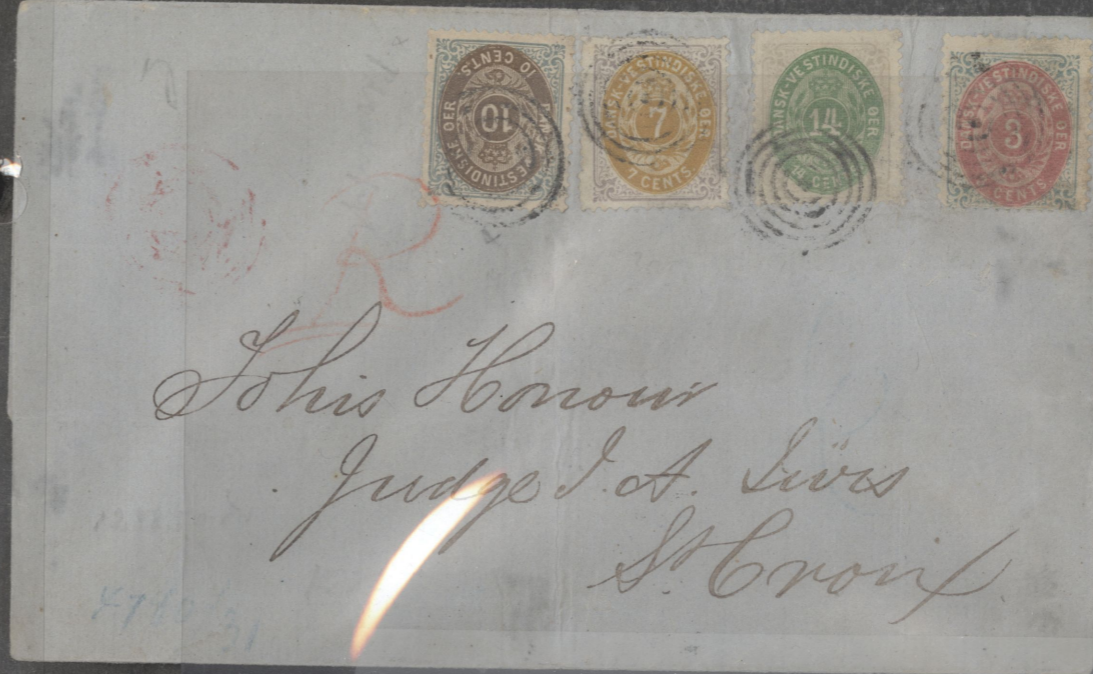 DANSK-VESTINDISKE ØER
10
10 CENTS
DANSK-VESTINDISKE ØER
7
7 CENTS.
DANSK-VESTINDISKE ØER
14
14 CENTS
DANSK-VESTINDISKE ØER
3
3 CENTS
R
To his Honour
Judge I. A.
St Croix